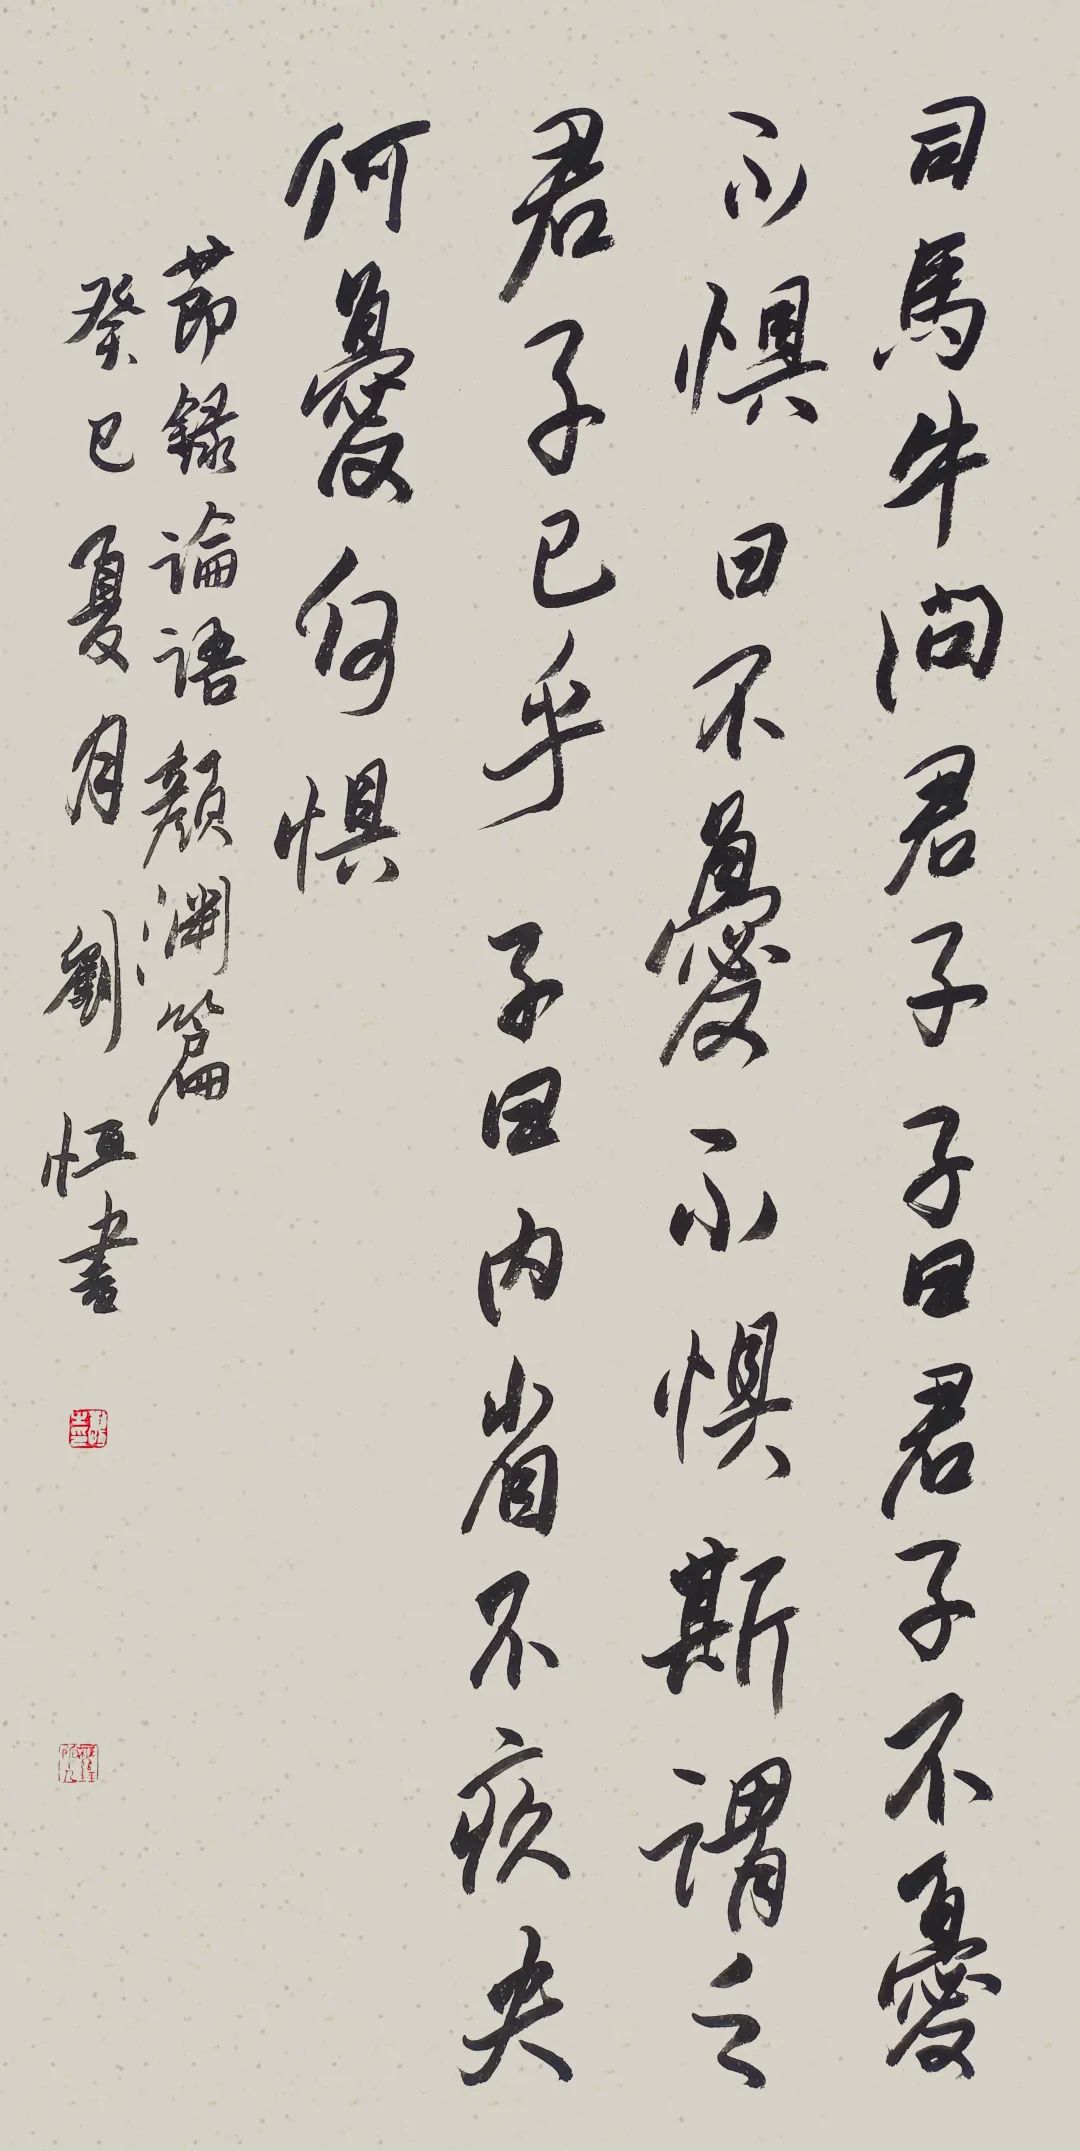 司馬牛问君子子曰君子不憂
不惧曰不憂不惧斯謂之
君子已乎子曰内省不疚夫
何憂何惧
莭録論語顔渊篇
癸巳夏月劉恒書